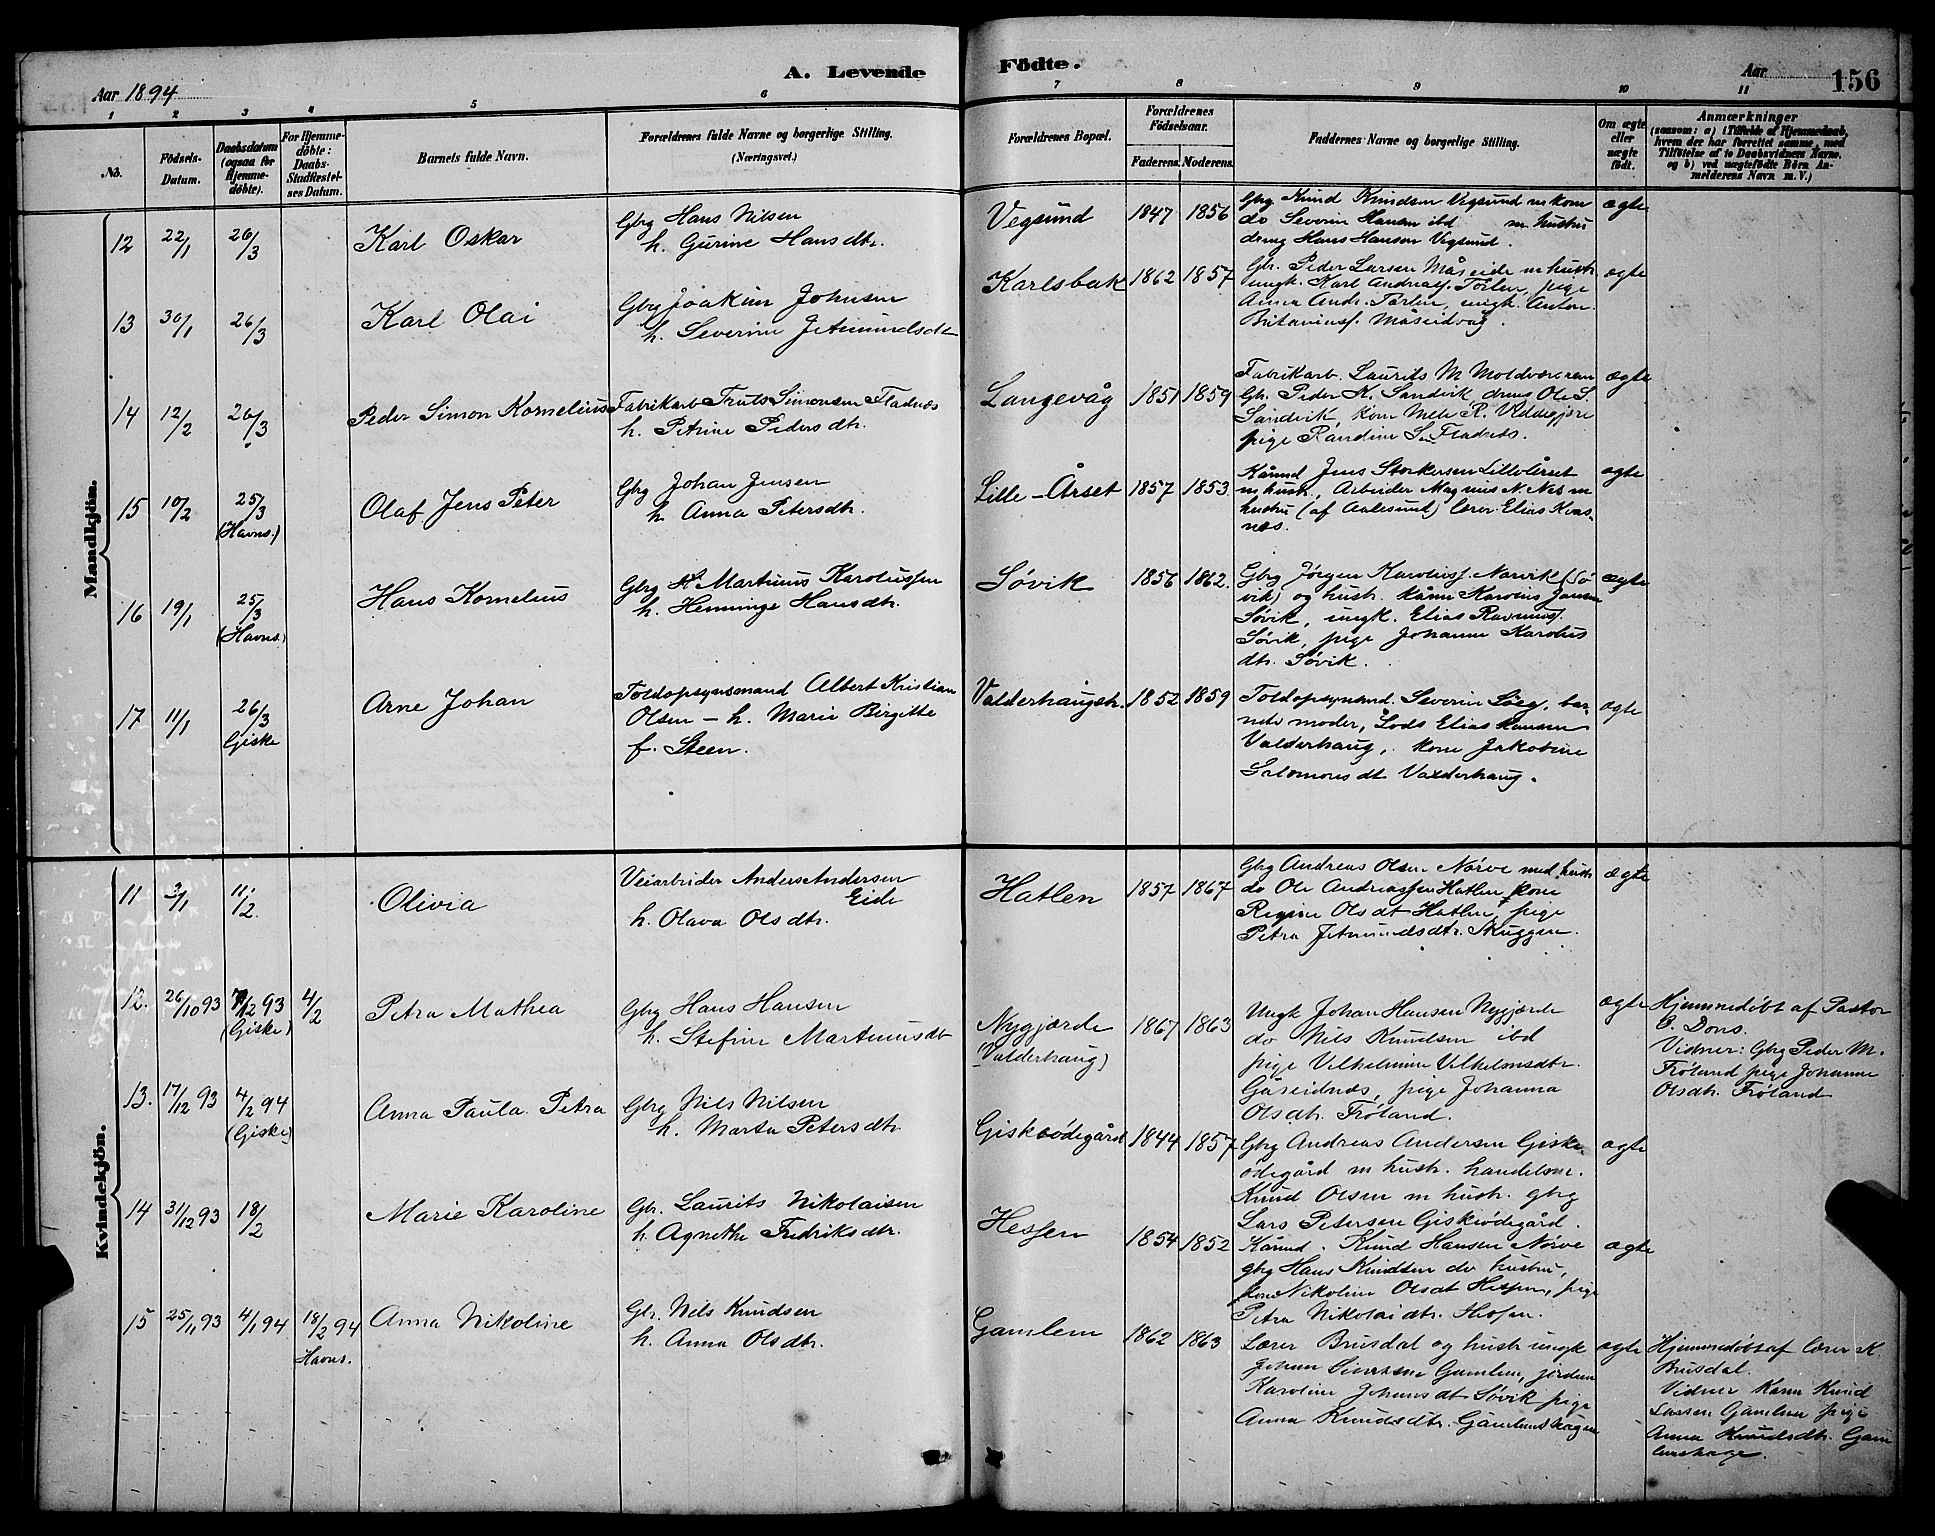 A. Levende Födte.
Aar 1894
Aar 156
1 2 3 4 5 6 7 8 9 10 11
No.
Födsels-Datum.
Daabsdatum (ogsaa for Hjemme-döbte).
For Hjemme-döbte: Daabs-Stadfæstel-ses Datum.
Barnets fulde Navn.
Forældrenes fulde Navne og borgerlige Stilling.
(Næringsvei.)
Forældrenes Bopæl.
Forældrenes Födselsaar.
Faderens. Moderens.
Faddernes Navne og borgerlige Stilling.
Om ægte eller uægte födt.
Anmærkninger
(saasom: a) i Tilfælde af Hjemmedaab,
hvem der har forrettet samme, med
Tilföielse af to Daabsvidners Navne,
og b) ved uægtefödte Börn An-
melderens Navn m. V.)
Mandkjön.
12 22/1 26/3 Karl Oskar
Gbrg Hans Nilsen
h. Gurine Hansdtr.
Vegsund 1847 1856
Gbrg Knud Knudsen Vegsund m kone
do Severin Hansen ibd m. hustru
dreng Hans Hansen Vegsund.
ægte
13 30/1 26/3 Karl Olai
Gbrg Joakim Johnsen
h. Severine Jetmundsdtr
Karlsbak 1862 1857
Gbr. Peder Larsen Måseide m hustr
ungk. Karl Andreasf. Törlen, pige
Anna Andr. Törlen, ungk. Anton
Måseidvåg.
ægte
14 12/2 26/3 Peder Simon Kornelius
Fabrikarb Truls Simonsen Fladnæs
h. Petrine Pedersdtr.
Langevåg 1851 1859
Fabrikarb. Laurits M Moldværsveen
Gbr. Peder K. Sandvik, dreng Ole S.
Sandvik, kone Mele R. Veddegjere
pige Randine S. Fladnæs.
ægte
15 10/2 25/3 (Havns.) Olaf Jens Peter
Gbrg Johan Jensen
h. Anna Petersdtr.
Lille-Årset 1857 1853
Kårmd Jens Storkersen Lilleårset
m hustr, Arbeider Magnus N. Næs m
hustru (af Aalesund) lærer Elias Kvas-
næs.
ægte
16 19/1 25/3 (Havns.) Hans Kornelius
Gbrg Martinus Karolussen
h. Henninge Hansdtr.
Søvik 1856 1862
Gbrg Jørgen Karolusf. Narvik (Sø
vik) og hustr. kårm Karolus Jansen
Søvik, ungk. Elias Rasmusf.
Søvik, pige Johanne Karolus
dtr. Søvik.
ægte
17 11/1 26/3 Giske Arne Johan
Toldopsynsmand Albert Kristian
Olsen – h. Marie Birgitte
f. Steen.
Valderhaugstr. 1852 1859
Toldopsynsmd. Severin Löeg, bar-
nets moder, Lods Elias Hansen
Valderhaug, kone Jakobine
Salomonsdt Valderhaug.
ægte
Kvindekjön.
11 3/1 11/2 Olivia
Veiarbeider Anders Andersen
Eide
h. Olava Olsdtr.
Hatlen 1857 1867
Gbrg Andreas Olsen Nörve med hustr
do Ole Andreassen Hatlen, kone
Regine Olsdt Hatlen, pige
Petra Jetmundsdtr. Muggen.
ægte
12. 26/10 93 7/12 93 (Giske) 4/2 Petra Mathea
Gbrg Hans Hansen
h. Stefine Martinusdtr
Nygjærde (Valderhaug) 1867 1863
Ungk Johan Hansen Nygjærde
do Nils Knudsen ibd
pige Vilhelmine Vilhelmsdtr.
Gåseidnæs, pige Johanna
Olsdtr. Fröland.
ægte
Hjemmedøbt af Pastor
E. Dons.
Vidner: Gbrg Peder M.
Fröland pige Johanne
Olsdtr. Fröland
13. 17/12 93 4/2 94 (Giske) Anna Paula Petra
Gbrg Nils Nilsen
h. Marta Petersdtr.
Giskeödegård 1844 1857
Gbrg Andreas Andersen Giske
ödegård m hustr. handelsm.
Knud Olsen m hustr. gbrg
Lars Petersen Giskeödegård.
ægte
14 31/12 93 18/2 Marie Karoline
Gbr. Laurits Nikolaisen
h. Agnethe Fredriksdtr.
Hessen 1854 1852
Kårmd. Knud Hansen Nörve
gbrg Hans Knudsen do hustru,
kone Nikoline Olsdt Hessen, pige
Petra Nikolaidtr. Hessen.
ægte
15 25/11 93 4/1 94 18/2 94 Havns. Anna Nikoline
Gbr. Nils Knudsen
h. Anna Olsdtr.
Gamlem 1862 1863
Lærer Brusdal og hustr ungk
Johan Sivertsen Gamlem, jordem
Karoline Johansdt Søvik pige
Anna Knudsdtr. Gamlemshagen
ægte
Hjemmedøbt af lærer K.
Brusdal.
Vidner Kårm Knud
Lassen Gamlem pige
Anna Knudsdtr. Gam
lemshage.